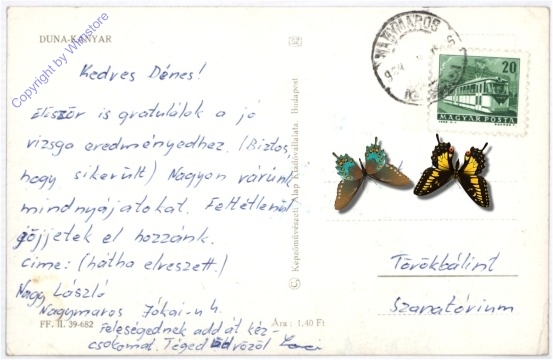 DUNA-KANYAR
Copyright by Winstore
Kedves Dénes!
Először is gratulálok a jó
vizsga eredményedhez. (Biztos,
hogy sikerült) Nagyon várunk
mindnyájatokat. Feltétlenül
gőjjetek el hozzánk.
Címe: (hátha elveszett.)
Nagy László
Nagymaros Jókai-u 4.
Feleségednek add át kéz-
csókomat. Téged üdvözöl
FF. II. 39-682
Ára: 1,40 Ft
© Képzőművészeti Alap Kiadóvállalata, Budapest
NAGYMAROS
20
MAGYAR POSTA
Törökbálint
Szanatórium